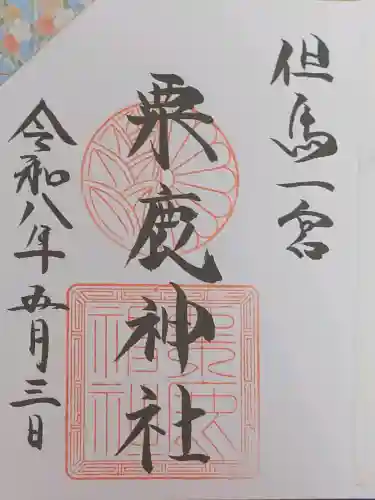 但馬一宮
粟鹿神社
令和八年五月三日
粟鹿神社